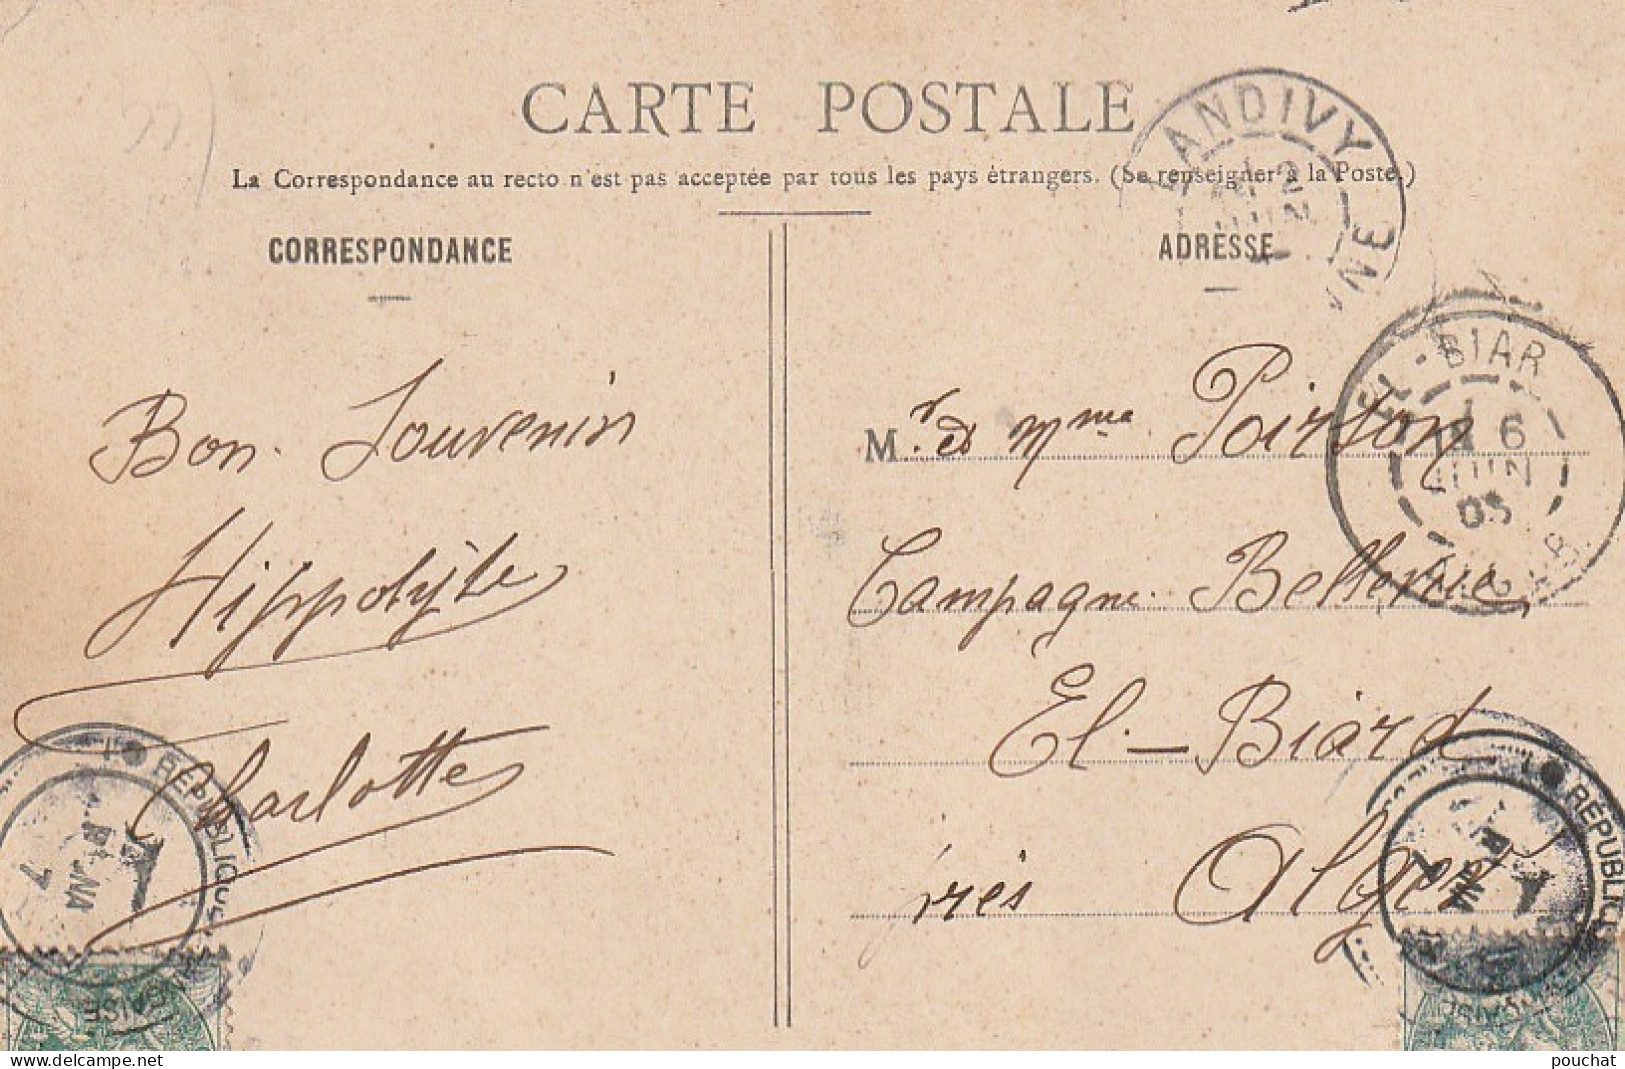 CARTE POSTALE
La Correspondance au recto n'est pas acceptée par tous les pays étrangers. (Se renseigner à la Poste.)
CORRESPONDANCE
Bon Souvenir
Hippolyte
Charlotte
ADRESSE
M.r et Mme Poirson
Campagne Bellevue
El-Biard
près Alger
ANDIVY
2
JUIN
EL-BIAR
6
JUIN
05
ALGER
RÉPUBLIQUE
7
RÉPUBLIQUE
pouchat